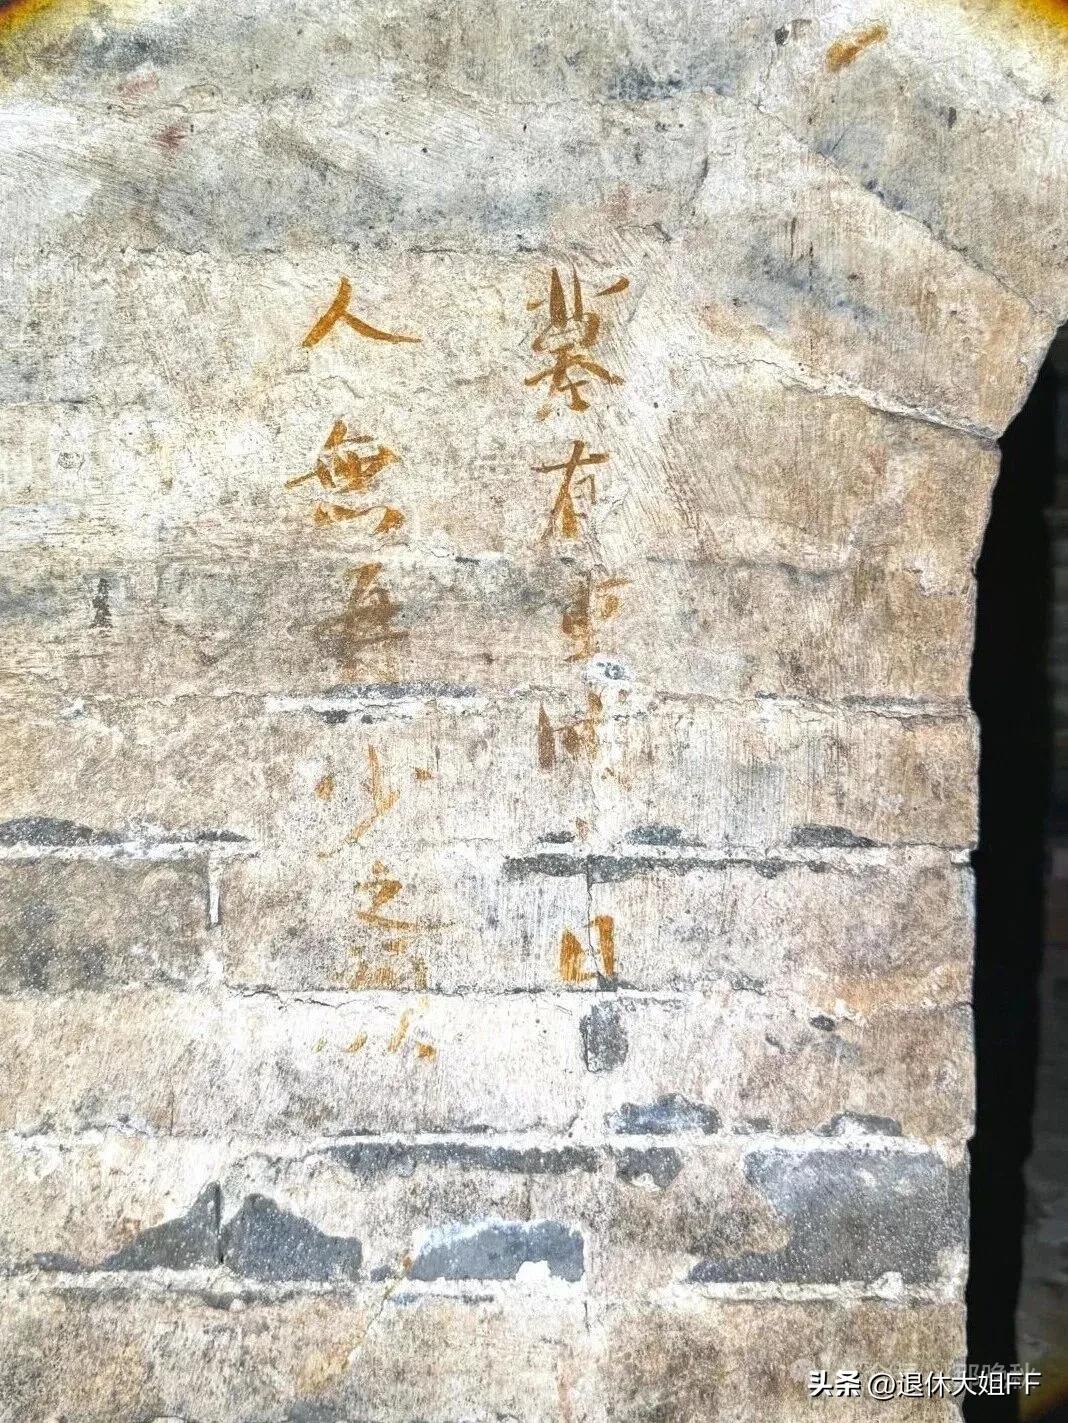 墓有重開之日
人無再少之顏
头条 @退休大姐FF